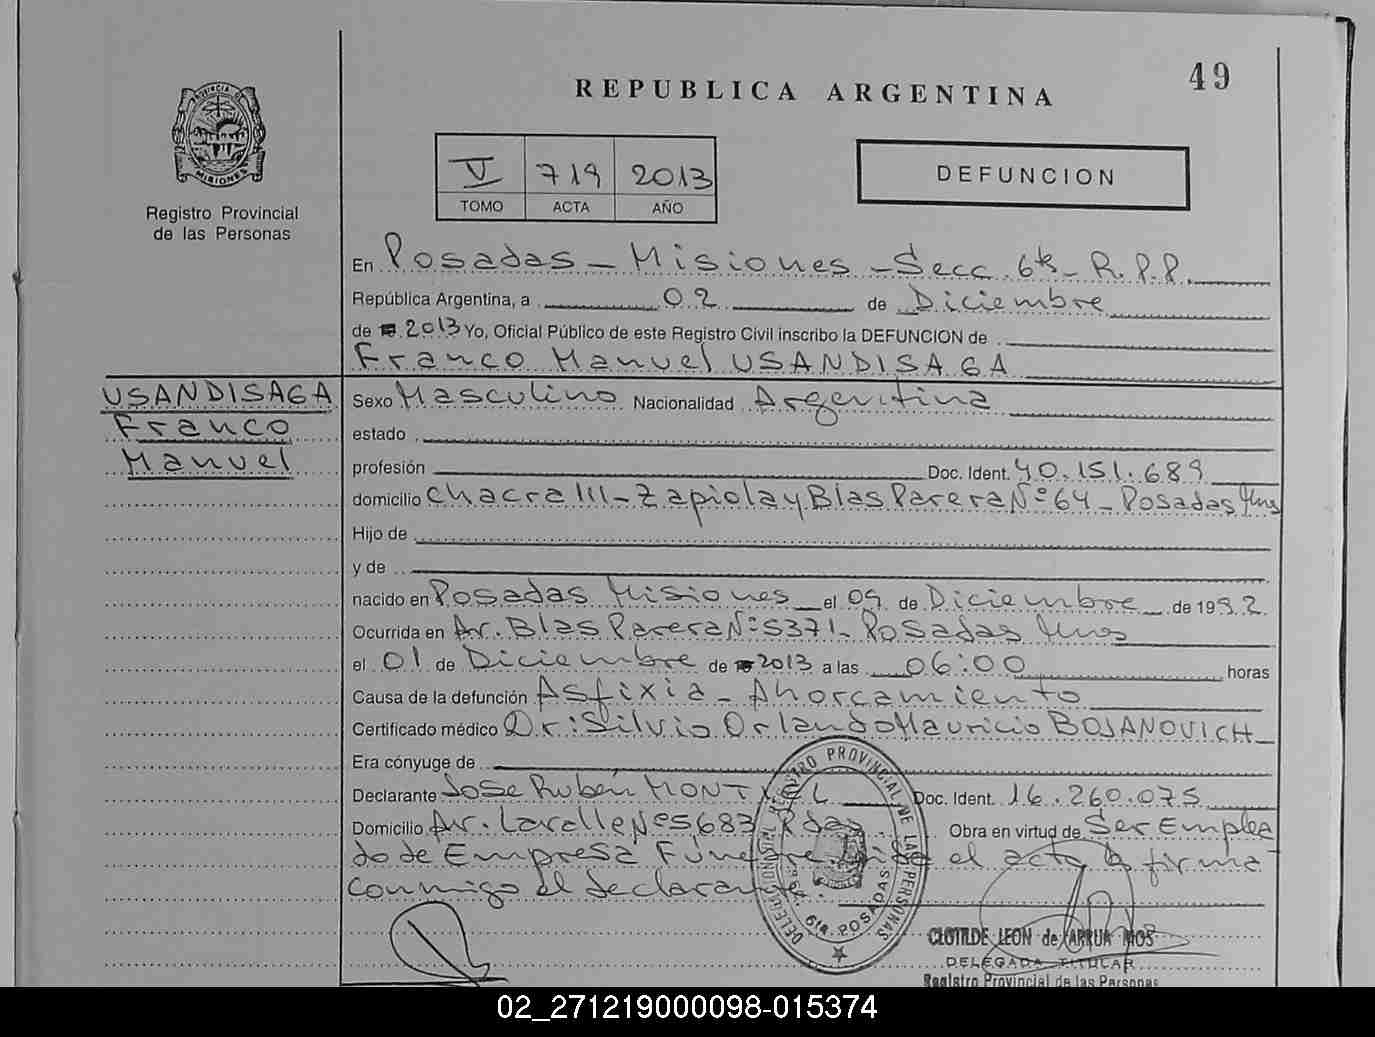 49
REPUBLICA ARGENTINA
PROVINCIA DE
MISIONES
Registro Provincial
de las Personas
V 719 2013
TOMO ACTA AÑO
DEFUNCION
En Posadas - Misiones - Secc. 6ta - R.P.P.
República Argentina, a 02 de Diciembre
de 2013 Yo, Oficial Público de este Registro Civil inscribo la DEFUNCION de
Franco Manuel USANDISAGA
USANDISAGA
Franco
Manuel
Sexo Masculino Nacionalidad Argentina
estado
profesión Doc. Ident. 40.151.689
domicilio Chacra 111 - Zapiola y Blas Parera Nº 64 - Posadas Mns
Hijo de
y de
nacido en Posadas Misiones el 09 de Diciembre de 1992.
Ocurrida en Av. Blas Parera Nº 5371 - Posadas Mnes
el 01 de Diciembre de 2013 a las 06:00 horas
Causa de la defunción Asfixia - Ahorcamiento
Certificado médico Dr: Silvio Orlando Mauricio BOJANOVICH
Era cónyuge de
Declarante Jose Rubén Doc. Ident. 16.260.075
Domicilio Av. Lavalle Nº 5683 Pdas. Obra en virtud de Ser Emplea
do de Empresa Fúnebre. el acta la firma
conmigo el declarante.
DELEGACION REGISTRO PROVINCIAL DE LAS PERSONAS
Sec. 6ta. POSADAS
CLOTILDE LEON de ARRUA MOS
DELEGADA TITULAR
Registro Provincial de las Personas
02_271219000098-015374